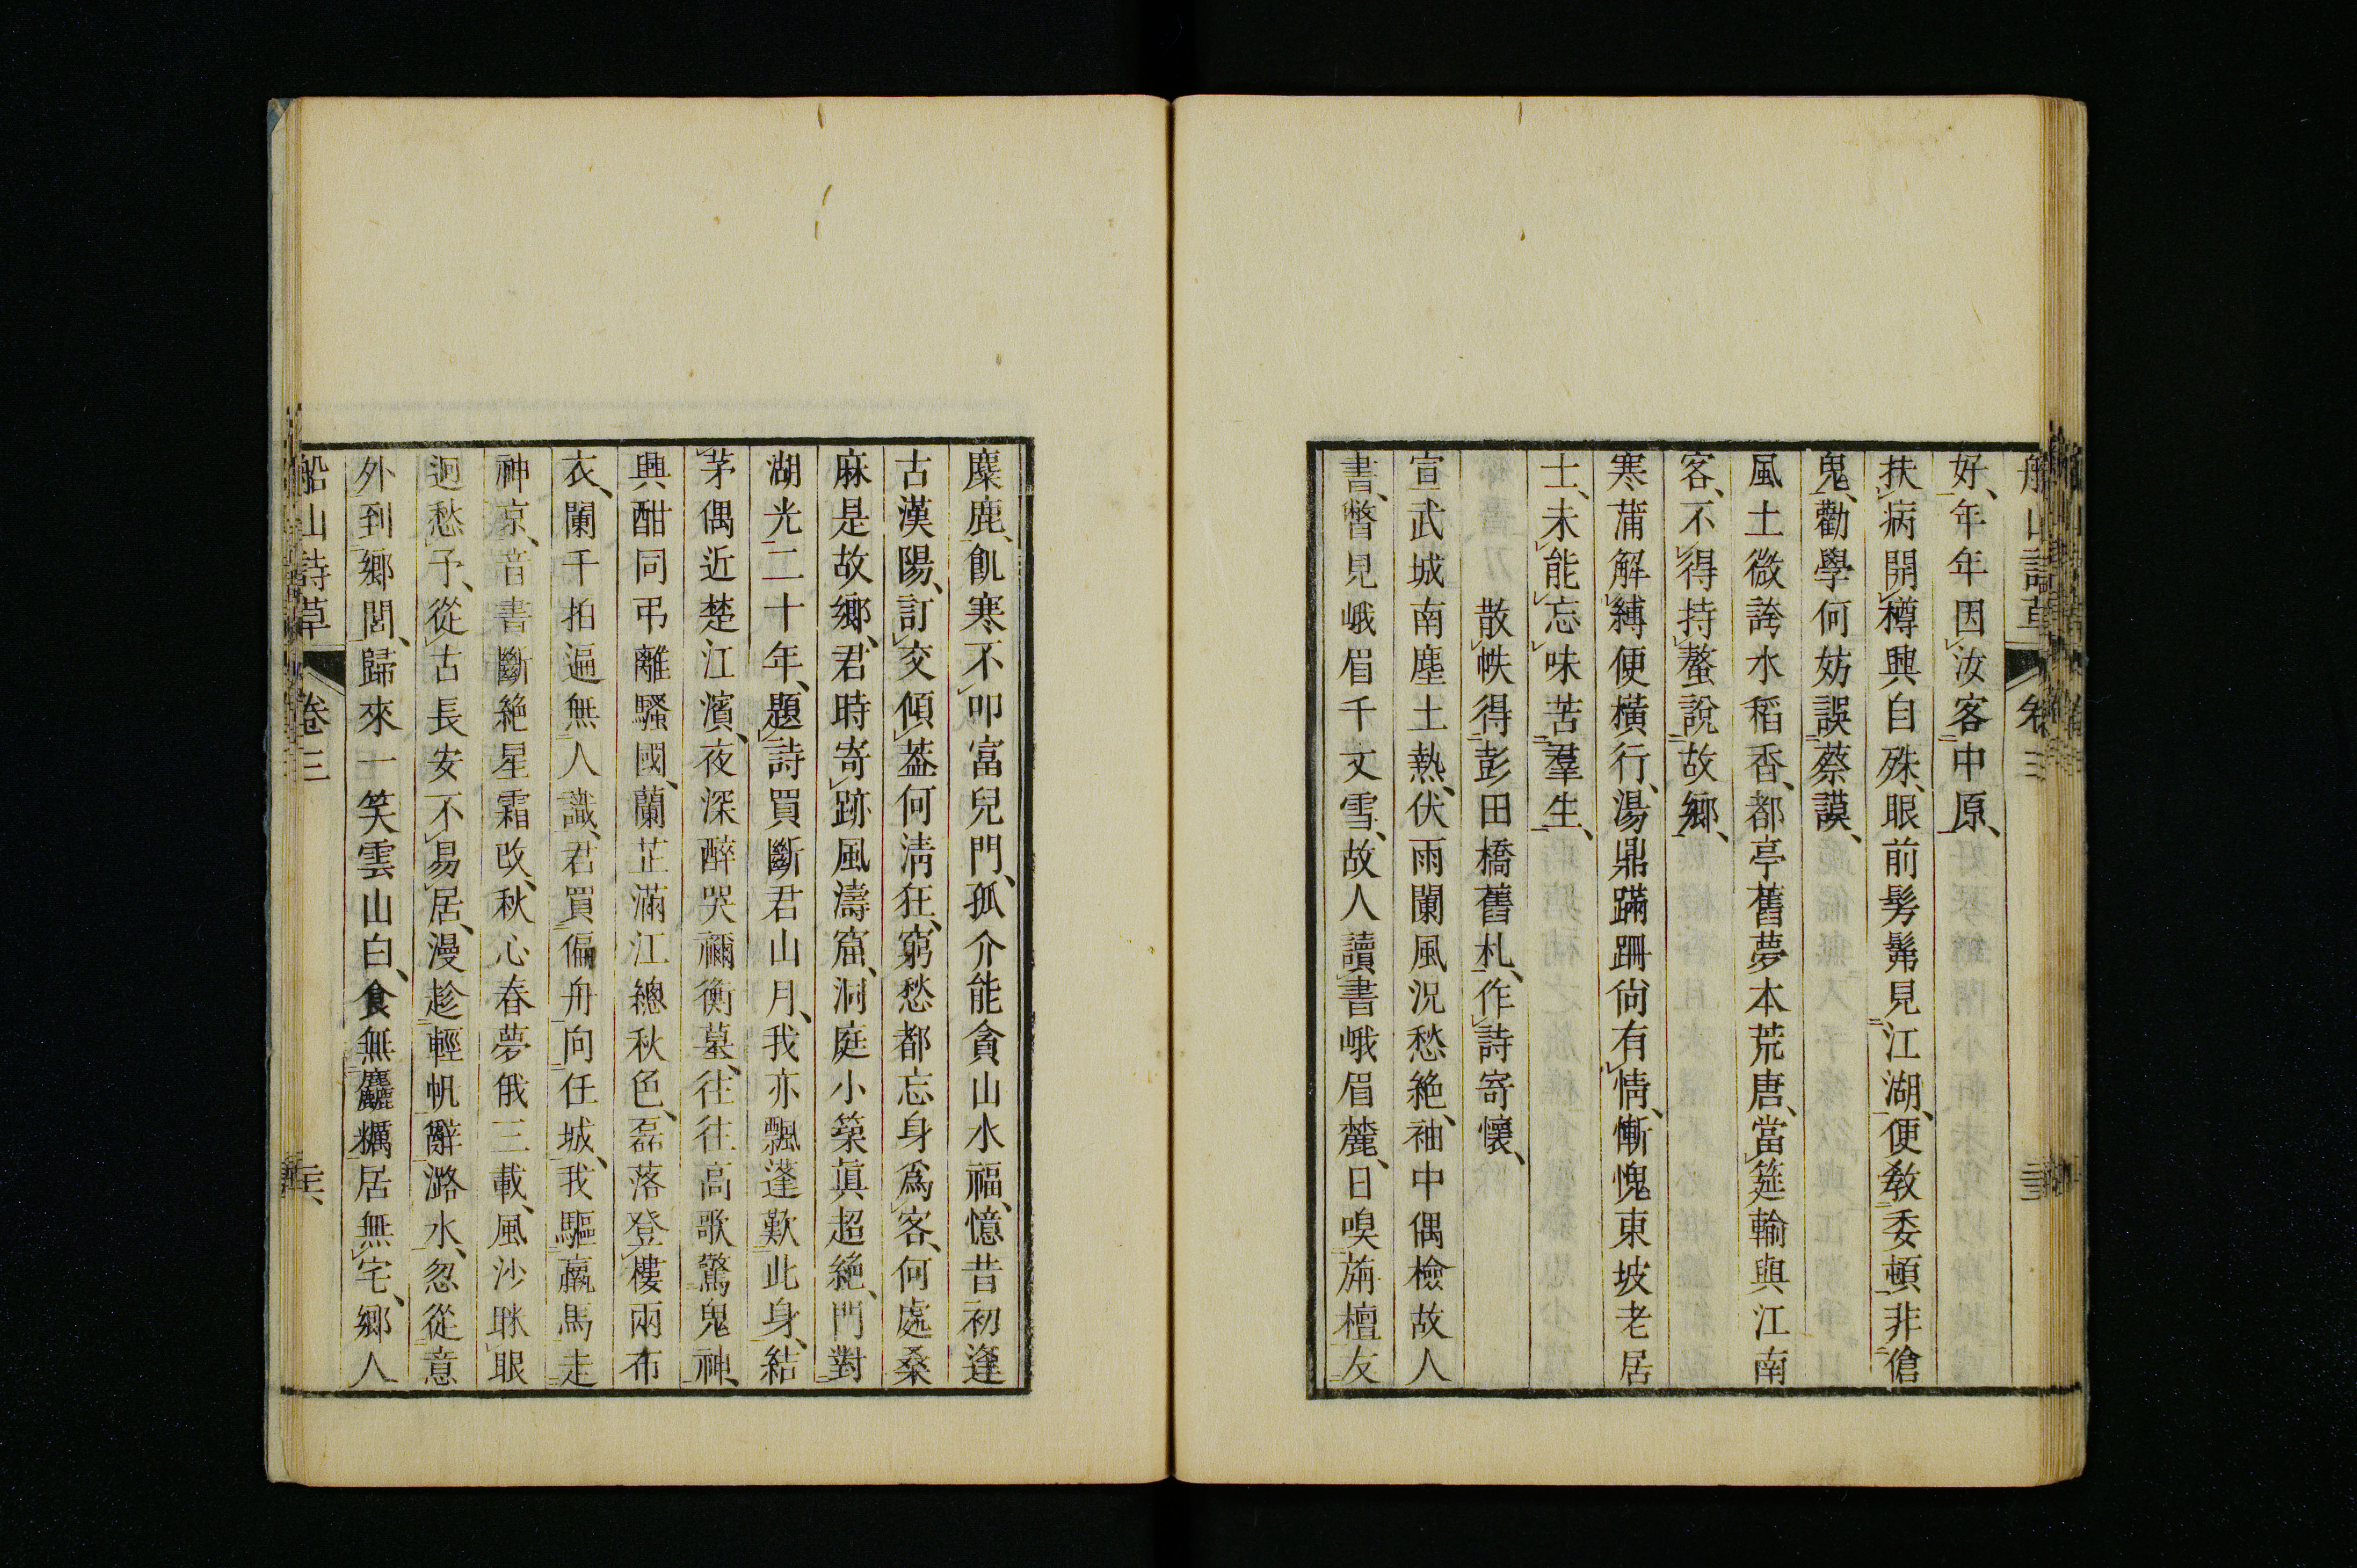 船山詩草 卷三
好、年年因汝客中原、
扶病開樽興自殊、眼前髣髴見江湖、便教委頓非傖
鬼、勸學何妨誤蔡謨、
風土微誇水稻香、都亭舊夢本荒唐、當筵輸與江南
客、不得持螯說故鄉、
寒蒲解縛便橫行、湯鼎蹣跚尙有情、慚愧東坡老居
士、未能忘味苦羣生、
散帙得彭田橋舊札、作詩寄懷、
宣武城南塵土熱、伏雨闌風況愁絕、袖中偶檢故人
書、瞥見峨眉千丈雪、故人讀書峨眉麓、日嗅旃檀友
麋鹿、飢寒不叩富兒門、孤介能貪山水福、憶昔初逢
古漢陽、訂交傾葢何淸狂、窮愁都忘身爲客、何處桑
麻是故鄉、君時寄跡風濤窟、洞庭小築眞超絕、門對
湖光二十年、題詩買斷君山月、我亦飄蓬歎此身、結
茅偶近楚江濱、夜深醉哭禰衡墓、往往高歌驚鬼神、
興酣同弔離騷國、蘭芷滿江總秋色、磊落登樓兩布
衣、闌干拍遍無人識、君買偏舟向任城、我驅羸馬走
神京、音書斷絕星霜改、秋心春夢俄三載、風沙眯眼
迥愁予、從古長安不易居、漫趁輕帆辭潞水、忽從意
外到鄉閭、歸來一笑雲山白、食無麤糲居無宅、鄉人
船山詩草 卷三